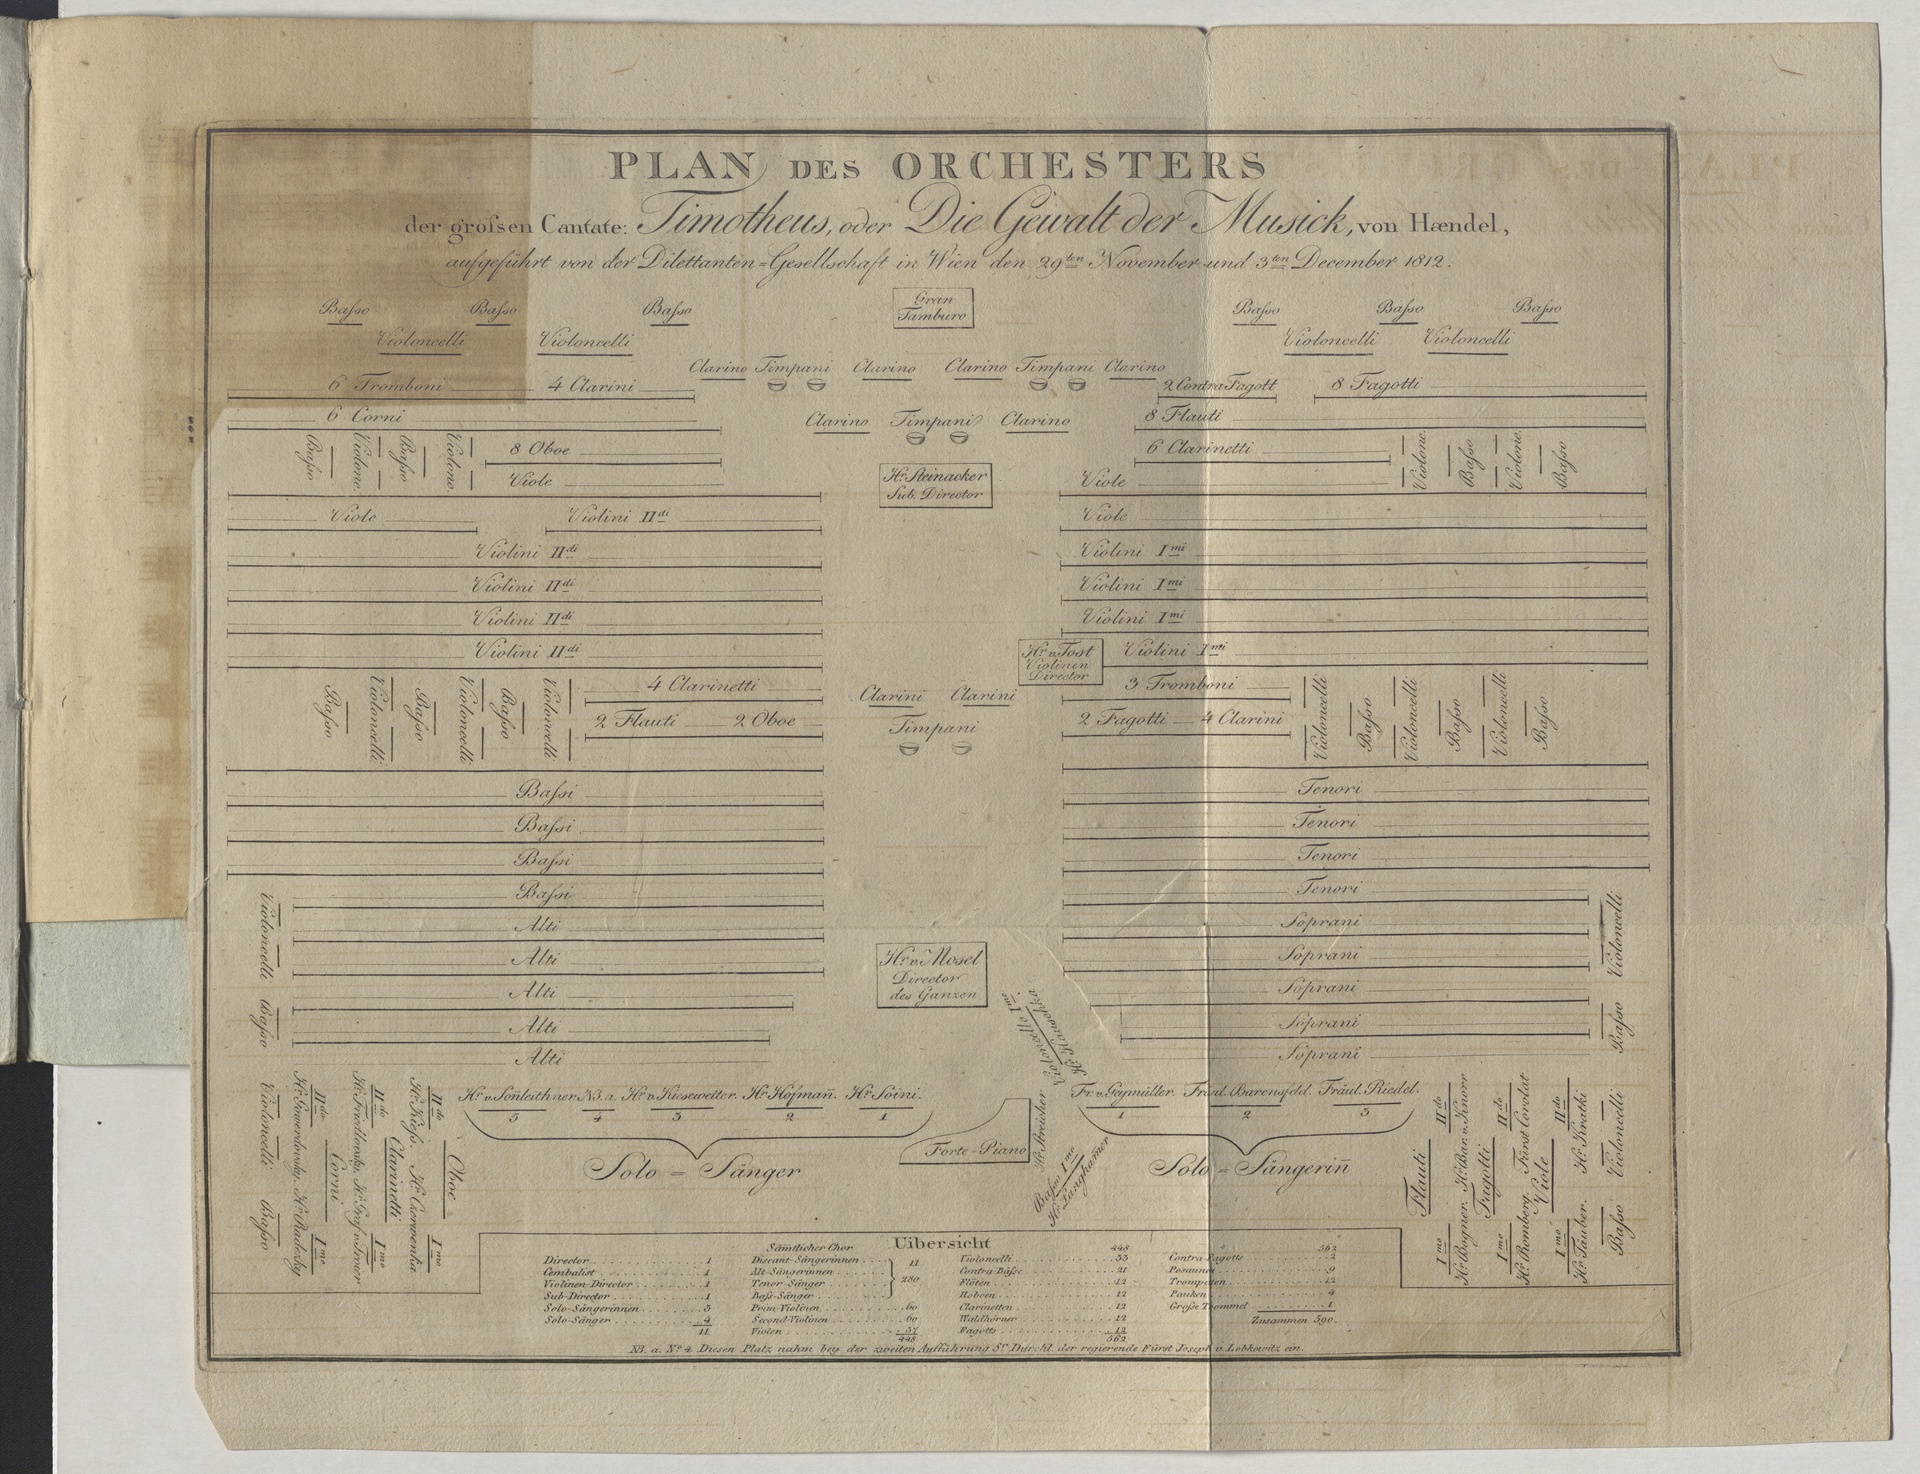 PLAN DES ORCHESTERS
der groſsen Cantate: Timotheus, oder Die Gewalt der Musick, von Hændel,
aufgeführt von der Dilettanten=Gesellschaft in Wien den 29ten November und 3ten December 1812.
Baſso Baſso Baſso Gran Tamburo Baſso Baſso Baſso
Violoncelli Violoncelli Violoncelli Violoncelli
Clarino Timpani Clarino Clarino Timpani Clarino
6 Tromboni 4 Clarini 2 Contra Fagott 8 Fagotti
6 Corni Clarino Timpani Clarino 8 Flauti
8 Oboe 6 Clarinetti
Baſso Violone Baſso Violone Violone Baſso Violone Baſso
Viole Hr. Steinacker Sub. Director Viole
Viole Violini IIdi Viole
Violini IIdi Violini Imi
Violini IIdi Violini Imi
Violini IIdi Violini Imi
Violini IIdi Hr. v. Tost Violinen Director Violini Imi
4 Clarinetti Clarini Clarini 3 Tromboni
Baſso Violoncelli Baſso Violoncelli Baſso Violoncelli Violoncelli Baſso Violoncelli Baſso Violoncelli Baſso
2 Flauti 2 Oboe Timpani 2 Fagotti 4 Clarini
Baſsi Tenori
Baſsi Tenori
Baſsi Tenori
Baſsi Tenori
Alti Soprani
Violoncelli Violoncelli
Alti Soprani
Hr. v. Mosel
Director
des Ganzen
Alti Soprani
Baſso Baſso
Alti Soprani
Alti Soprani
Violoncello Imo
Hr. Hauschka
Hr. v. Sonleithner NB. a. Hr. v. Kiesewetter. Hr. Hofmañ. Hr. Soini.
5 4 3 2 1
Fr. v. Geymüller. Fräul. Barensfeld. Fräul. Riedel.
1 2 3
Solo = Sänger
Forte=Piano
Hr. Streicher
Baſso Imo
Hr. Langhamer
Solo = Sängeriñ
Violoncelli Baſso
IIdo Corni Imo
Hr. Radezky
IIdo Clarinetti Imo
Hr. Friedlowsky, Hr. Graf v. Troyer
IIdo Oboe Imo
Hr. Kieſs. Hr. Czerwenka
Flauti
IIdo Imo
Hr. Bogner. Hr. Bar. v. Knorr
Fagotti
IIdo Imo
Hr. Romberg. Fürst Corolat
Viole
IIdo Imo
Hr. Täuber. Hr. Kratki
Violoncelli Baſso
Uibersicht
Director 1
Cembalist 1
Violinen-Director 1
Sub-Director 1
Solo-Sängerinnen 3
Solo-Sänger 4
11
Sämtlicher Chor 11
Discant-Sängerinnen
Alt-Sängerinnen
Tenor-Sänger
Baſs-Sänger
280
Prim-Violinen 60
Second-Violinen 60
Violen 37
448
448
Violoncelli 33
Contra-Bäſse 21
Flöten 12
Hoboen 12
Clarinetten 12
Waldhörner 12
Fagotts 12
562
562
Contra-Fagotts 2
Posaunen 9
Trompeten 12
Pauken 4
Groſse Trommel 1
Zusammen 590.
NB. a. No. 4 Diesen Platz nahm bey der zweiten Aufführung Sr. Durchl. der regierende Fürst Joseph v. Lobkowitz ein.